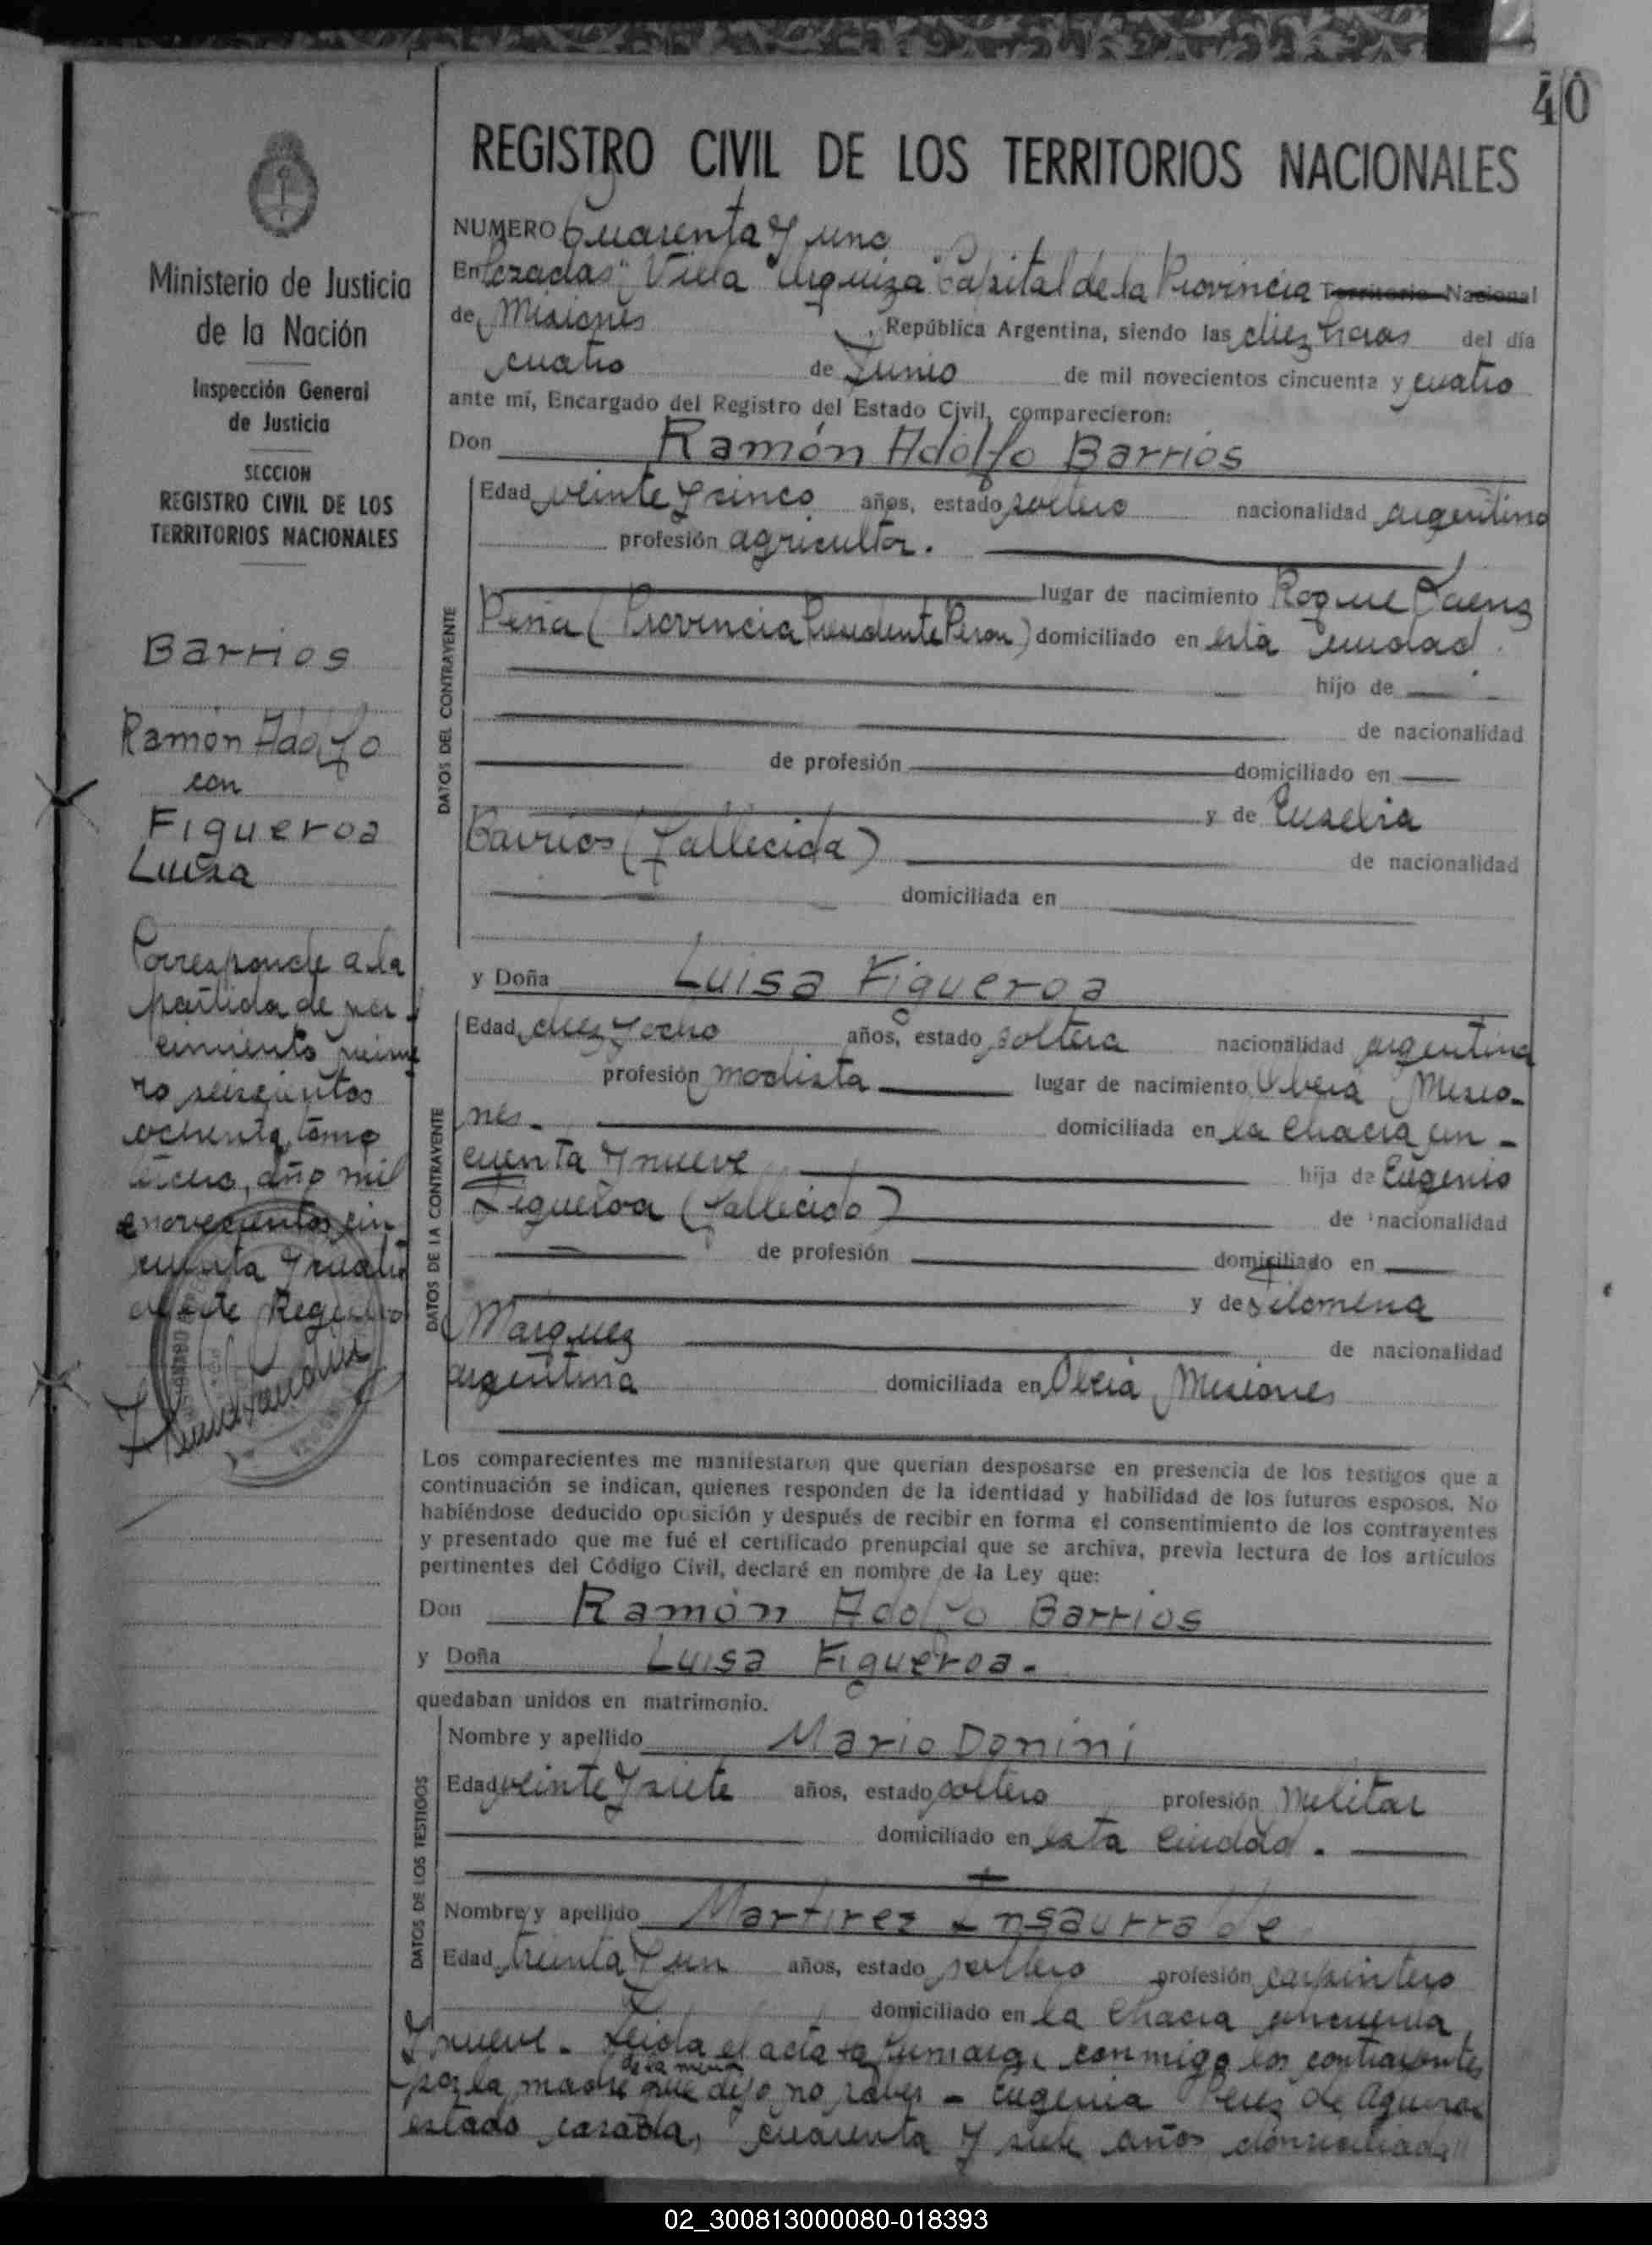 40
REGISTRO CIVIL DE LOS TERRITORIOS NACIONALES
Ministerio de Justicia
de la Nación
Inspección General
de Justicia
SECCION
REGISTRO CIVIL DE LOS
TERRITORIOS NACIONALES
Barrios
Ramón Adolfo
con
Figueroa
Luisa
Corresponde a la
partida de na-
cimiento núme
ro seiscientos
ochenta, tomo
tercero, año mil
novecientos cin
cuenta y cuatro
de este Registro
NUMERO Cuarenta y uno
En Posadas "Villa Urquiza" Capital de la Provincia Territorio Nacional
de Misiones, República Argentina, siendo las diez horas del día
cuatro de Junio de mil novecientos cincuenta y cuatro
ante mí, Encargado del Registro del Estado Civil, comparecieron:
Don Ramón Adolfo Barrios
DATOS DEL CONTRAYENTE
Edad veinte y cinco años, estado soltero nacionalidad argentino
profesión agricultor.
lugar de nacimiento Roque Saenz
Peña (Provincia Presidente Peron) domiciliado en esta ciudad.
hijo de
de nacionalidad
de profesión domiciliado en
y de Eusebia
Barrios (fallecida) de nacionalidad
domiciliada en
y Doña Luisa Figueroa
DATOS DE LA CONTRAYENTE
Edad diez y ocho años, estado soltera nacionalidad argentina
profesión modista lugar de nacimiento Obera Misio-
nes. domiciliada en la chacra cin-
cuenta y nueve hija de Eugenio
Figueroa (fallecido) de nacionalidad
de profesión domiciliado en
y de Filomena
Marquez de nacionalidad
argentina domiciliada en Obera, Misiones
Los comparecientes me manifestaron que querían desposarse en presencia de los testigos que a
continuación se indican, quienes responden de la identidad y habilidad de los futuros esposos. No
habiéndose deducido oposición y después de recibir en forma el consentimiento de los contrayentes
y presentado que me fué el certificado prenupcial que se archiva, previa lectura de los artículos
pertinentes del Código Civil, declaré en nombre de la Ley que:
Don Ramón Adolfo Barrios
y Doña Luisa Figueroa.
quedaban unidos en matrimonio.
DATOS DE LOS TESTIGOS
Nombre y apellido Mario Donini
Edad veinte y siete años, estado soltero profesión Militar
domiciliado en esta ciudad.
Nombre y apellido Martires Insaurralde
Edad treinta y un años, estado soltero profesión carpintero
domiciliado en la chacra cincuenta
y nueve. Leida el acta la conmigo los contrayentes
por la madre de la menor que dijo no saber - Eugenia Perez de
estado casada, cuarenta y siete años domiciliada
02_300813000080-018393